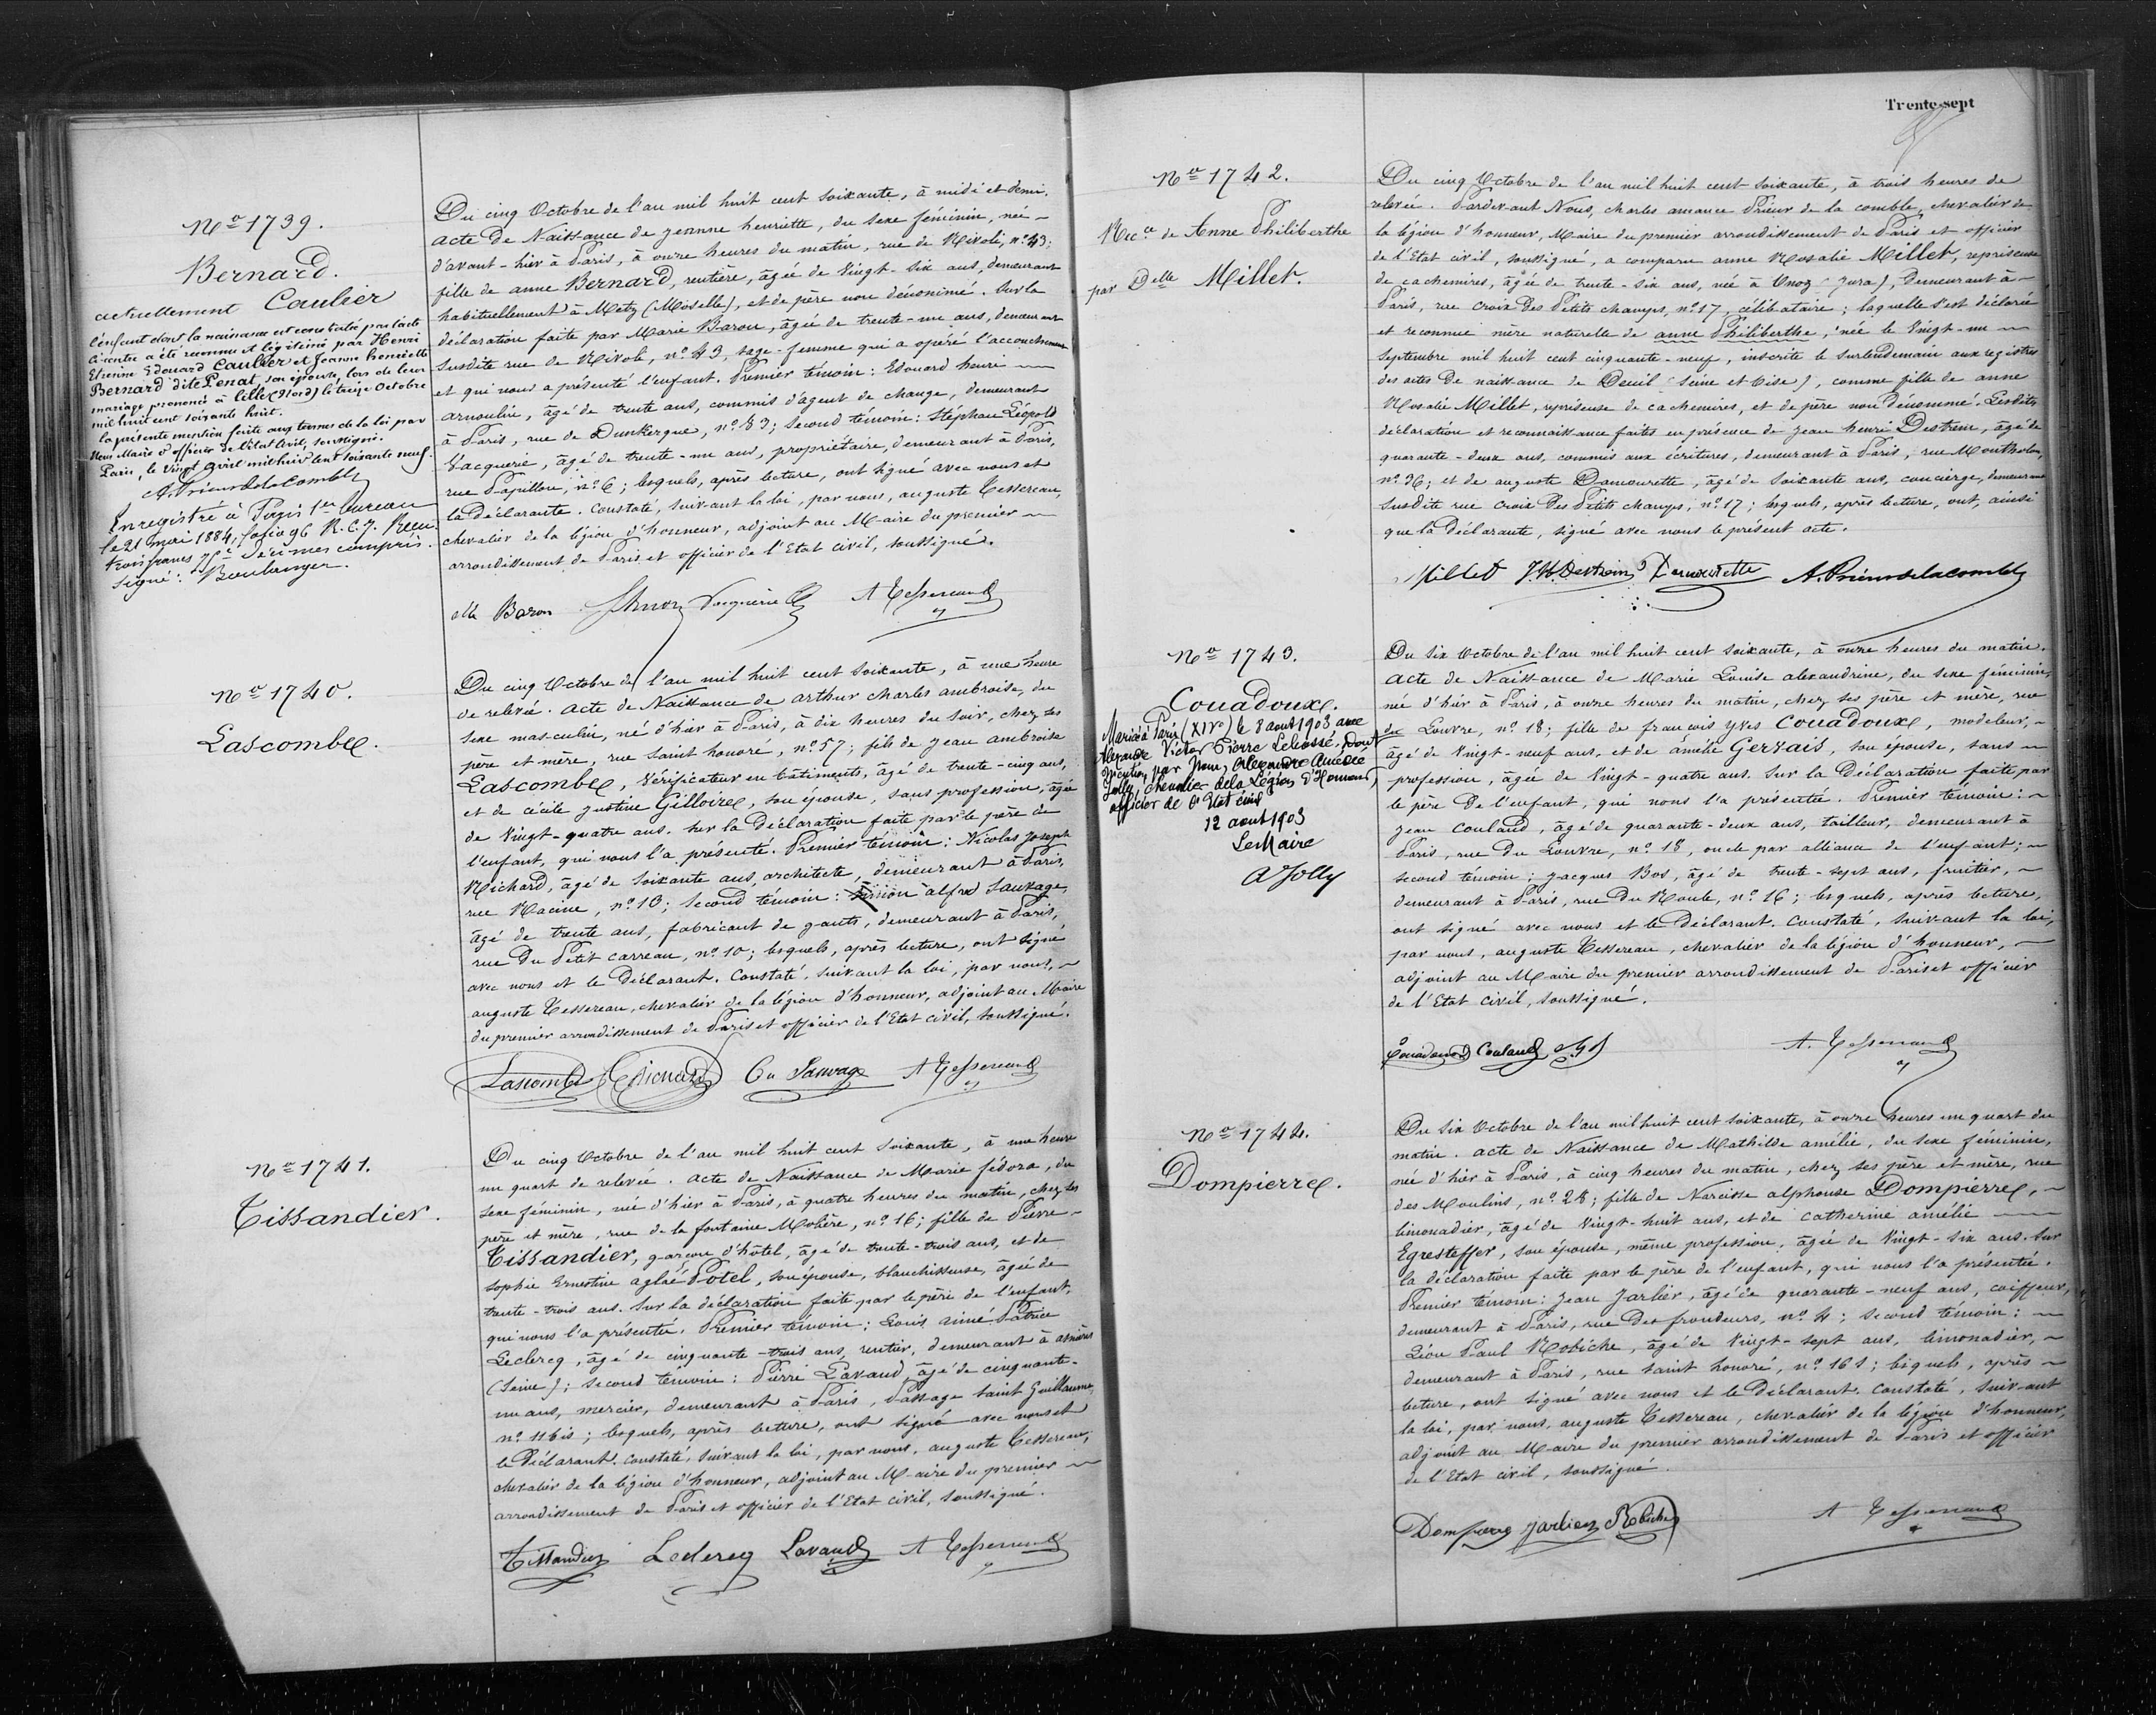 No 1739.
Bernard.
actuellement Caulier
L'enfant dont la naissance est constatée par l'acte
ci-contre a été reconnu et légitimé par Henri
Etienne Edouard Caulier et Jeanne henriette
Bernard dite Penat, son épouse, lors de leur
mariage prononcé à Lille (Nord) le treize Octobre
mil huit cent soixante huit.
La présente mention faite aux termes de la loi par
Nous Maire et officier de l'état civil, soussigné.
Paris, le vingt avril mil huit cent soixante neuf.
A. Prieur de la Comble
Enregistré à Paris 1er bureau
le 21 mai 1884, folio 96 R. C. 7. Reçu
trois francs 75c décimes compris.
Signé: Boulanger.
Du cinq Octobre de l'an mil huit cent soixante, à midi et demi.
acte de Naissance de Jeanne henriette, du sexe féminin, née
d'avant-hier à Paris, à onze heures du matin, rue de Rivoli, no 43;
fille de anne Bernard, rentière, âgée de vingt-six ans, demeurant
habituellement à Metz (Moselle), et de père non dénommé. Sur la
déclaration faite par Marie Baron, âgée de trente-un ans, demeurant
susdite rue de Rivoli, no 43, sage-femme qui a opéré l'accouchement
et qui nous a présenté l'enfant. Premier témoin: Edouard henri
arnoulin, âgé de trente ans, commis d'agent de change, demeurant
à Paris, rue de Dunkerque, no 83; second témoin: Stéphane Léopold
Vacquerie, âgé de trente-un ans, propriétaire, demeurant à Paris,
rue Papillon, no 6; lesquels, après lecture, ont signé avec nous et
la déclarante. Constaté, suivant la loi, par nous, auguste Tessereau,
chevalier de la légion d'honneur, adjoint au Maire du premier
arrondissement de Paris et officier de l'Etat civil, soussigné.
Baron Vacquerie A Tessereau
No 1740.
Lascombe.
Du cinq Octobre de l'an mil huit cent soixante, à une heure
de relevée. acte de Naissance de arthur charles ambroise, du
sexe masculin, né d'hier à Paris, à dix heures du soir, chez ses
père et mère, rue saint honoré, no 57; fils de Jean ambroise
Lascombe, vérificateur en bâtiments, âgé de trente-cinq ans,
et de cécile justine Gilloire, son épouse, sans profession, âgée
de vingt-quatre ans. Sur la Déclaration faite par le père de
l'enfant, qui nous l'a présenté. Premier témoin: Nicolas Joseph
Richard, âgé de soixante ans, architecte, demeurant à Paris,
rue Racine, no 13; second témoin: alfred Sauvage,
âgé de trente ans, fabricant de gants, demeurant à Paris,
rue du Petit carreau, no 10; lesquels, après lecture, ont signé
avec nous et le Déclarant. Constaté, suivant la loi, par nous,
auguste Tessereau, chevalier de la légion d'honneur, adjoint au Maire
du premier arrondissement de Paris et officier de l'Etat civil, soussigné.
Lascombe Richard Sauvage A Tessereau
No 1741.
Tissandier.
Du cinq Octobre de l'an mil huit cent soixante, à une heure
un quart de relevée. acte de Naissance de Marie fédora, du
sexe féminin, née d'hier à Paris, à quatre heures du matin, chez ses
père et mère, rue de la fontaine Molière, no 16; fille de Pierre
Tissandier, garçon d'hôtel, âgé de trente-trois ans, et de
sophie Ernestine aglaé Potel, son épouse, blanchisseuse, âgée de
trente-trois ans. Sur la déclaration faite par le père de l'enfant,
qui nous l'a présentée. Premier témoin: Louis aimé Patrice
Leclercq, âgé de cinquante-trois ans, rentier, demeurant à asnières
(Seine); second témoin: Pierre Lavaud, âgé de cinquante-
un ans, mercier, demeurant à Paris, passage saint Guillaume,
no 11 bis; lesquels, après lecture, ont signé avec nous et
le Déclarant. Constaté, suivant la loi, par nous, auguste Tessereau,
chevalier de la légion d'honneur, adjoint au Maire du premier
arrondissement de Paris et officier de l'Etat civil, soussigné.
Tissandier Leclercq Lavaud A Tessereau
Trente-sept
No 1742.
Recce de Anne Philiberthe
par Delle Millet.
Du cinq Octobre de l'an mil huit cent soixante, à trois heures de
relevée. Pardevant Nous, charles amance Prieur de la comble, chevalier de
la légion d'honneur, Maire du premier arrondissement de Paris et officier
de l'Etat civil, soussigné, a comparu anne Rosalie Millet, repriseuse
de cachemires, âgée de trente-six ans, née à Onoz (Jura), demeurant à
Paris, rue Croix des Petits champs, no 17, célibataire; laquelle s'est déclarée
et reconnue mère naturelle de anne Philiberthe, née le vingt-un
septembre mil huit cent cinquante-neuf, inscrite le surlendemain aux registres
des actes de naissance de Deuil (Seine et Oise), comme fille de anne
Rosalie Millet, repriseuse de cachemires, et de père non dénommé. Lesdites
déclaration et reconnaissance faites en présence de Jean henri Destrem, âgé de
quarante-deux ans, commis aux écritures, demeurant à Paris, rue Montholon,
no 36; et de auguste Damourette, âgé de soixante ans, concierge, demeurant
susdite rue Croix des Petits champs, no 17; lesquels, après lecture, ont, ainsi
que la déclarante, signé avec nous le présent acte.
Millet J. H. Destrem Damourette A. Prieur de la comble
No 1743.
Couadoux.
Mariée à Paris (XIVe) le 8 aout 1903 avec
Alexandre Victor Pierre Lelaossé. Dont
mention par Nous, Alexandre Amédée
Jolly, chevalier de la Légion d'Honneur,
officier de l'Etat civil
12 aout 1903
Le Maire
A Jolly
Du six Octobre de l'an mil huit cent soixante, à onze heures du matin.
acte de Naissance de Marie Louise alexandrine, du sexe féminin,
née d'hier à Paris, à onze heures du matin, chez ses père et mère, rue
du Louvre, no 18; fille de françois yves Couadoux, modeleur,
âgé de vingt-neuf ans, et de amélie Gervais, son épouse, sans
profession, âgée de vingt-quatre ans. Sur la Déclaration faite par
le père de l'enfant, qui nous l'a présentée. Premier témoin:
Jean Couland, âgé de quarante-deux ans, tailleur, demeurant à
Paris, rue du Louvre, no 18, oncle par alliance de l'enfant;
second témoin: Jacques Bos, âgé de trente-sept ans, fruitier,
demeurant à Paris, rue du Roule, no 16; lesquels, après lecture,
ont signé avec nous et le Déclarant. Constaté, suivant la loi,
par nous, auguste Tessereau, chevalier de la légion d'honneur,
adjoint au Maire du premier arrondissement de Paris et officier
de l'Etat civil, soussigné.
Couadoux Couland A. Tessereau
No 1744.
Dompierre.
Du six Octobre de l'an mil huit cent soixante, à onze heures un quart du
matin. acte de Naissance de Mathilde amélie, du sexe féminin,
née d'hier à Paris, à cinq heures du matin, chez ses père et mère, rue
des Moulins, no 28; fille de Narcisse alphonse Dompierre,
limonadier, âgé de vingt-huit ans, et de catherine amélie
Egresteffer, son épouse, même profession, âgée de vingt-six ans. Sur
la déclaration faite par le père de l'enfant, qui nous l'a présentée.
Premier témoin: Jean Jarlier, âgé de quarante-neuf ans, coiffeur,
demeurant à Paris, rue des frondeurs, no 4; second témoin:
Léon Paul Robiche, âgé de vingt-sept ans, limonadier,
demeurant à Paris, rue saint honoré, no 161; lesquels, après
lecture, ont signé avec nous et le Déclarant. Constaté, suivant
la loi, par nous, auguste Tessereau, chevalier de la légion d'honneur,
adjoint au Maire du premier arrondissement de Paris et officier
de l'Etat civil, soussigné.
Dompierre Jarlier Robiche A Tessereau